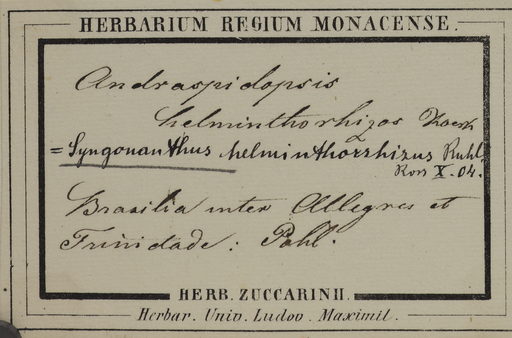 HERBARIUM REGIUM MONACENSE.
Andraspidopsis
helminthorhizos Koern
= Syngonanthus helminthorrhizus Ruhl.
Ross X. 04.
Brasilia inter Allegres et
Trinidade: Pohl.
HERB. ZUCCARINII.
Herbar. Univ. Ludov. Maximil.